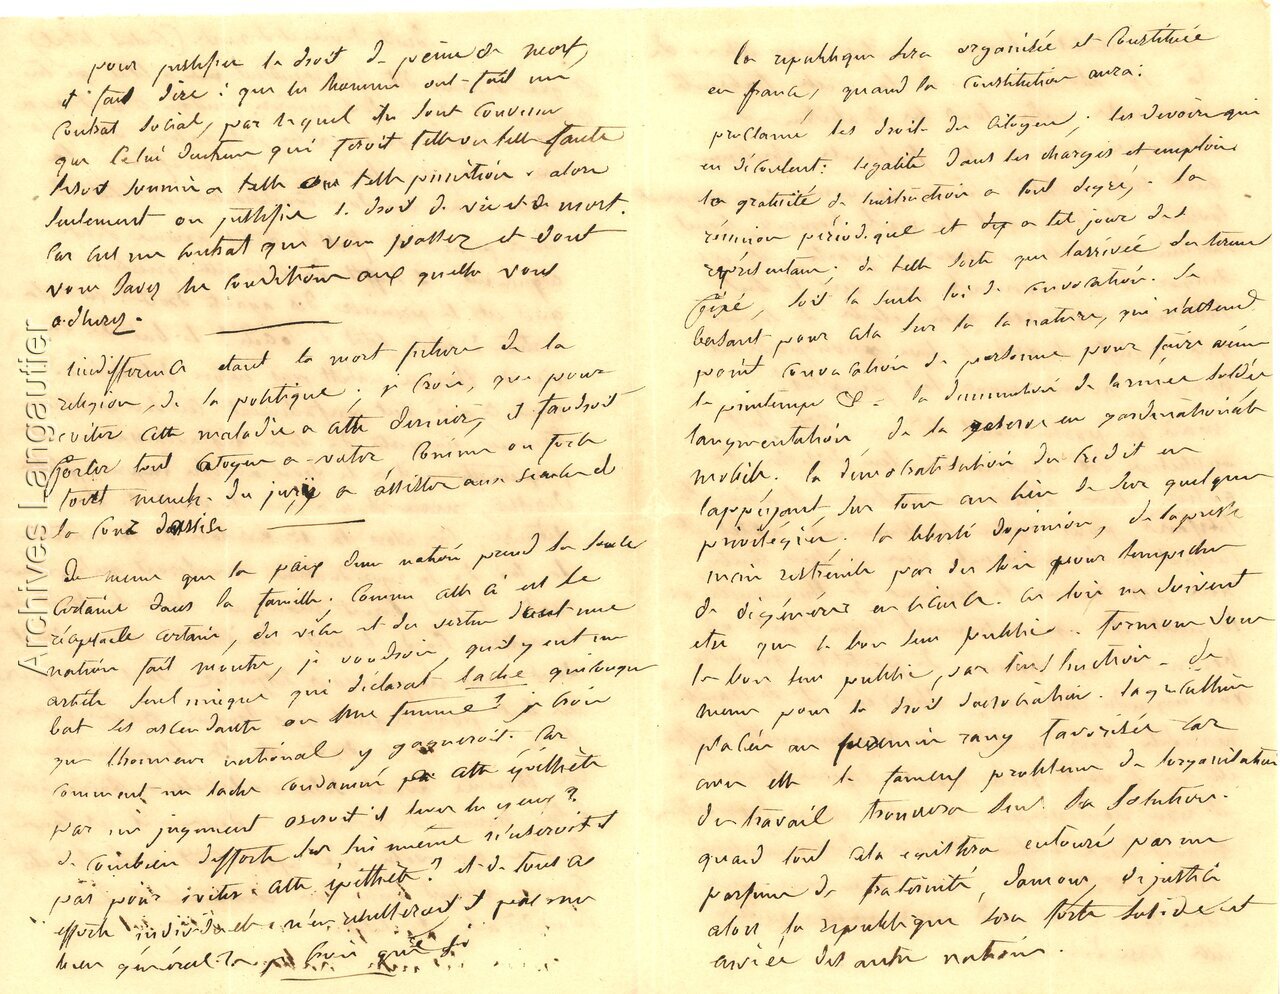 pour justifier le droit de peine de mort,
il faut dire : que les hommes ont fait un
contrat social, par lequel ils sont convenu
que celui d'entreux qui feroit telle ou telle faute
seroit soumis a telle ou telle punition. alors
seulement on justifie le droit de vie et de mort.
car c'est un contrat que vous passez et dont
vous savez les conditions aux quelles vous
adherez.
l'indifference etant la mort future de la
religion, de la politique; je crois, que pour
eviter cette maladie a cette derniere, il faudroit
forcer tout citoyen a voter comme on force
tout membre du jury a assister aux seances de
la cour d'assise
de meme que la paix d'une nation prend sa source
certaine dans la famille. comme celle ci est le
réceptacle certain, des vices et des vertus dont une
nation fait montre, je voudrois, qu'il y eut un
article seul unique qui déclarat lache quiconque
bat ses ascendants ou sa femme? je crois
que l'honneur national y gagneroit. car
comment un lache condamné par cette épithète
par un jugement oseroit il lever les yeux?
de combien d'efforts sur lui même n'useroit il
pas pour eviter cette épithète? et de tous ces
efforts individuels n'en resulteroit il pas un
bien général. je crois que si
la republique sera organisée et constituée
en france, quand la constitution aura:
proclamé les droits du citoyen; les devoirs qui
en découlent: l'egalité dans les charges et emplois
la gratuité de l'instruction a tout degré; la
réunion périodique et a tel jour des
représentans; de telle sorte que l'arrivée du terme
fixé, soit la seule loi de convocation. se
basant pour cela sur la la nature, qui n'attend
point convocation de personne pour faire venir
le printemps &. la diminution de l'armée soldée
l'augmentation de la reserve en garde nationale
mobile. la démocratisation du credit en
l'appuyant sur tous au lieu de sur quelques
privilégiés. la liberté d'opinion, de la presse
mais restreinte par des lois pour l'empecher
de dégénérer en licence. ces lois ne doivent
etre que le bon sens public. formons donc
le bon sens public, par l'instruction. de
meme pour le droit d'association. l'agriculture
placée au premier rang favorisée car
avec elle le fameux probleme de l'organisation
du travail trouvera seul sa solution.
quand tout cela existera entouré par un
parfum de fraternité, d'amour, de justice
alors la republique sera forte solide et
enviée des autres nations.
Archives Langautier